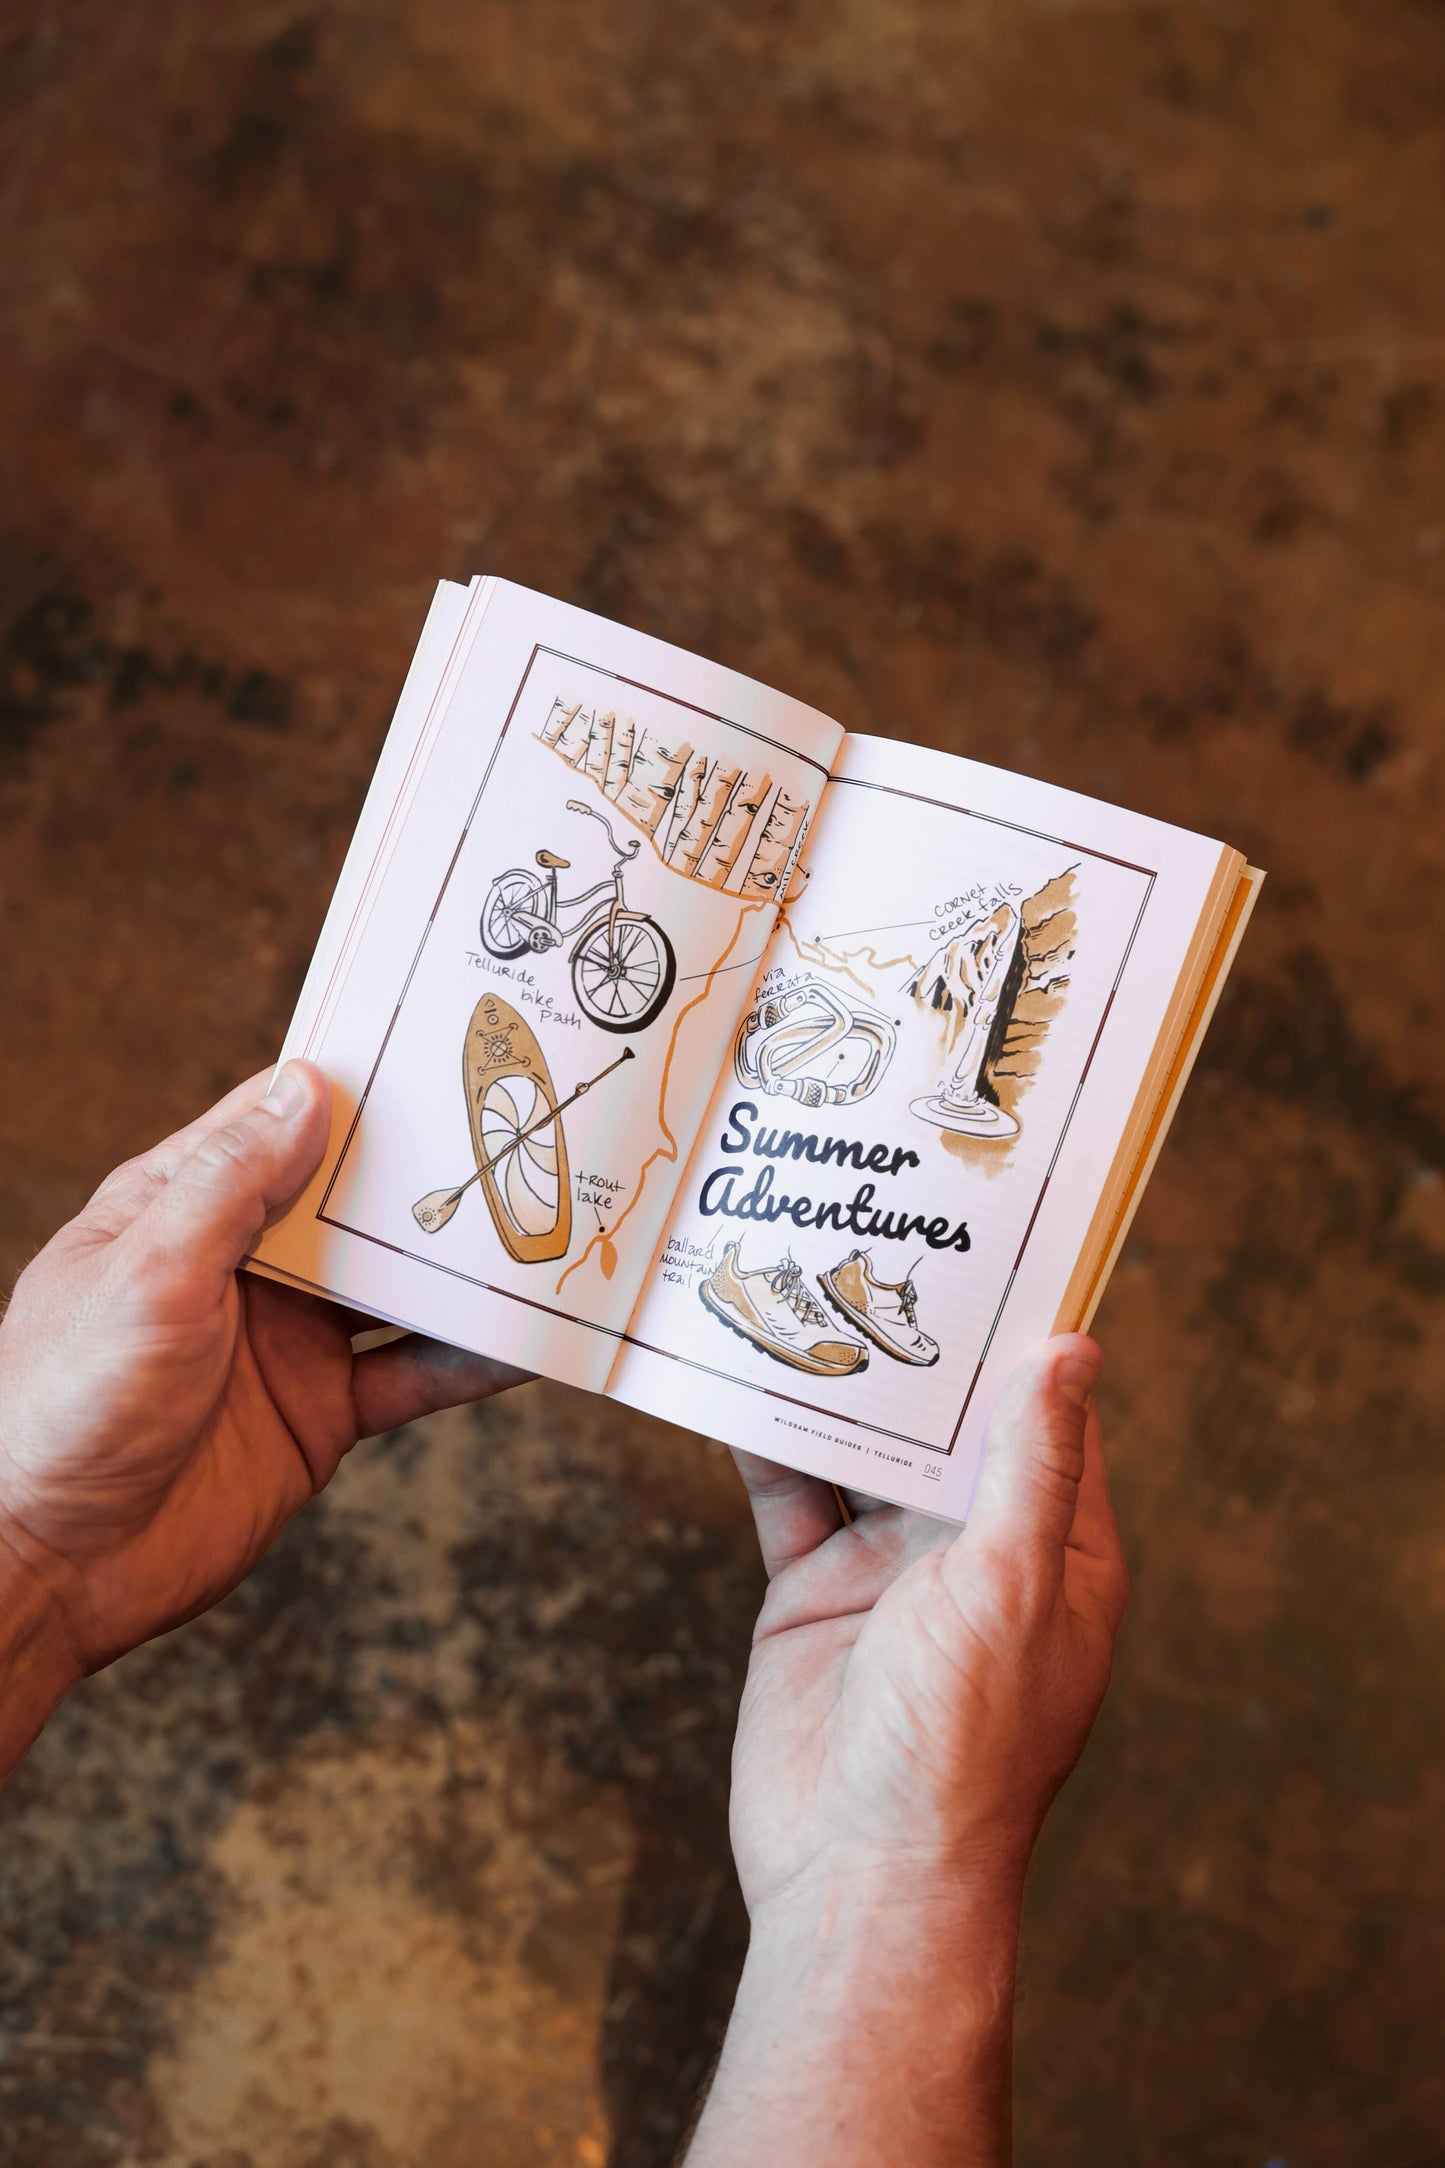 mill creek
Telluride
bike
path
trout
lake
cornet
creek falls
via
ferrata
Summer
Adventures
ballard
mountain
trail
WILDSAM FIELD GUIDES | TELLURIDE 045